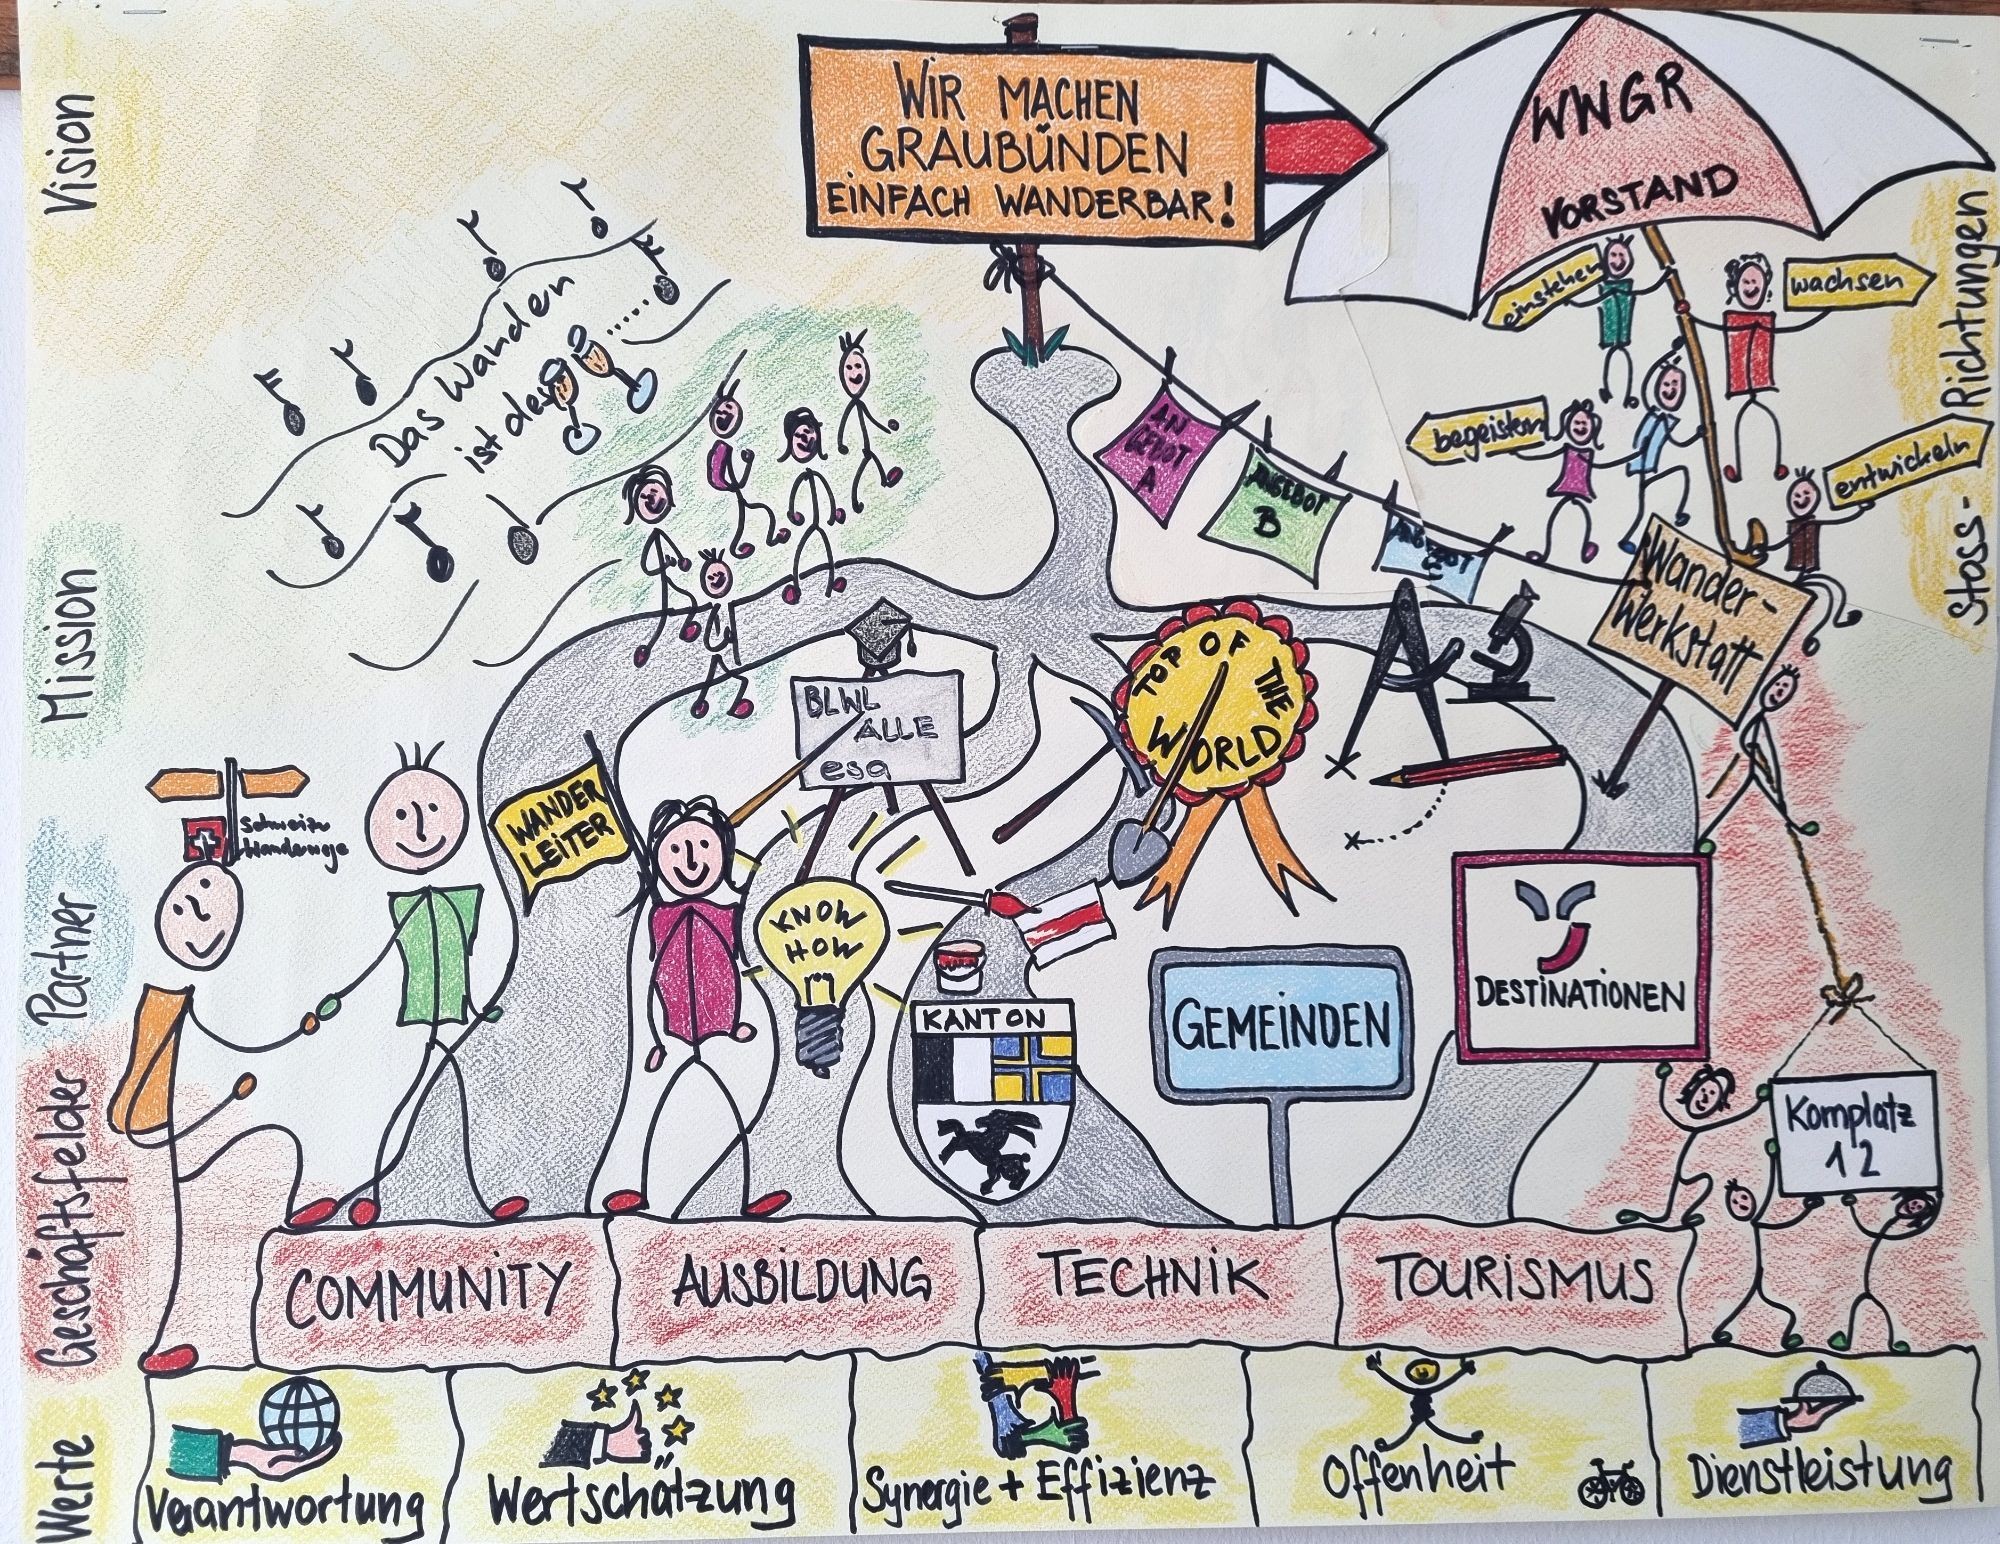 Vision
Mission
Partner
Geschäftsfelder
Werte
Stoss-Richtungen
WIR MACHEN
GRAUBÜNDEN
EINFACH WANDERBAR!
WWGR
VORSTAND
einstehen
wachsen
begeistern
entwickeln
Das Wandern
ist des
AN
GEBOT
A
ANGEBOT
B
ANGEBOT
C
Wander-
Werkstatt
BLWL
ALLE
esa
TOP OF THE
WORLD
WANDER
LEITER
Schweizer
Wanderwege
KNOW
HOW
KANTON
GEMEINDEN
DESTINATIONEN
Kornplatz
12
COMMUNITY
AUSBILDUNG
TECHNIK
TOURISMUS
Verantwortung
Wertschätzung
Synergie + Effizienz
Offenheit
Dienstleistung